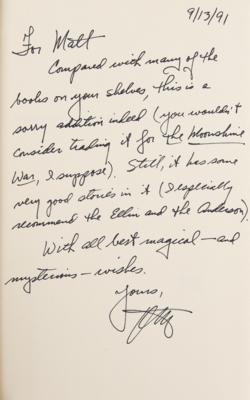 9/13/91
For Matt
Compared with many of the
books on your shelves, this is a
sorry addition indeed (you wouldn't
consider trading it for the Moonshine
War, I suppose). Still, it has some
very good stories in it (I especially
recommend the Ellin and the Anderson).
With all best magical—and
mysterious—wishes.
Yours,